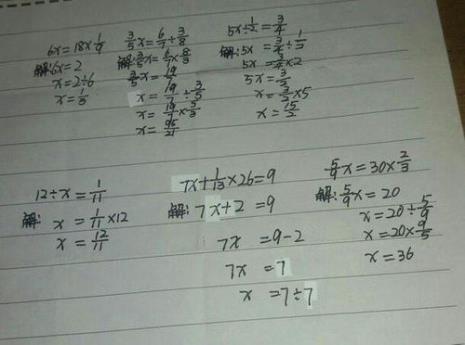 6x=18×1/9
解:6x=2
x=2÷6
x=1/3
3/5x=6/7÷3/8
解:3/5x=6/7×8/3
3/5x=19/7
x=19/7÷3/5
x=19/7×5/3
x=95/21
5x÷1/2=3/4
解:5x=3/4÷1/2
5x=3/4×2
5x=3/2
x=3/2×5
x=15/2
12÷x=1/11
解:x=1/11×12
x=12/11
7x+1/13×26=9
解:7x+2=9
7x=9-2
7x=7
x=7÷7
5/9x=30×2/3
解:5/9x=20
x=20÷5/9
x=20×9/5
x=36